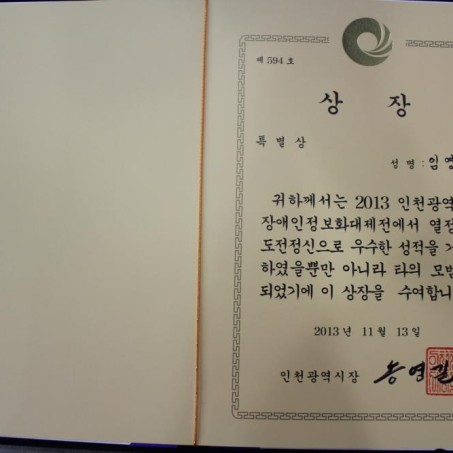 제 594 호
상 장
특별상
성명 : 임영
귀하께서는 2013 인천광역
장애인정보화대제전에서 열정
도전정신으로 우수한 성적을 거
하였을뿐만 아니라 타의 모범
되었기에 이 상장을 수여합니
2013 년 11 월 13 일
인천광역시장 송영길